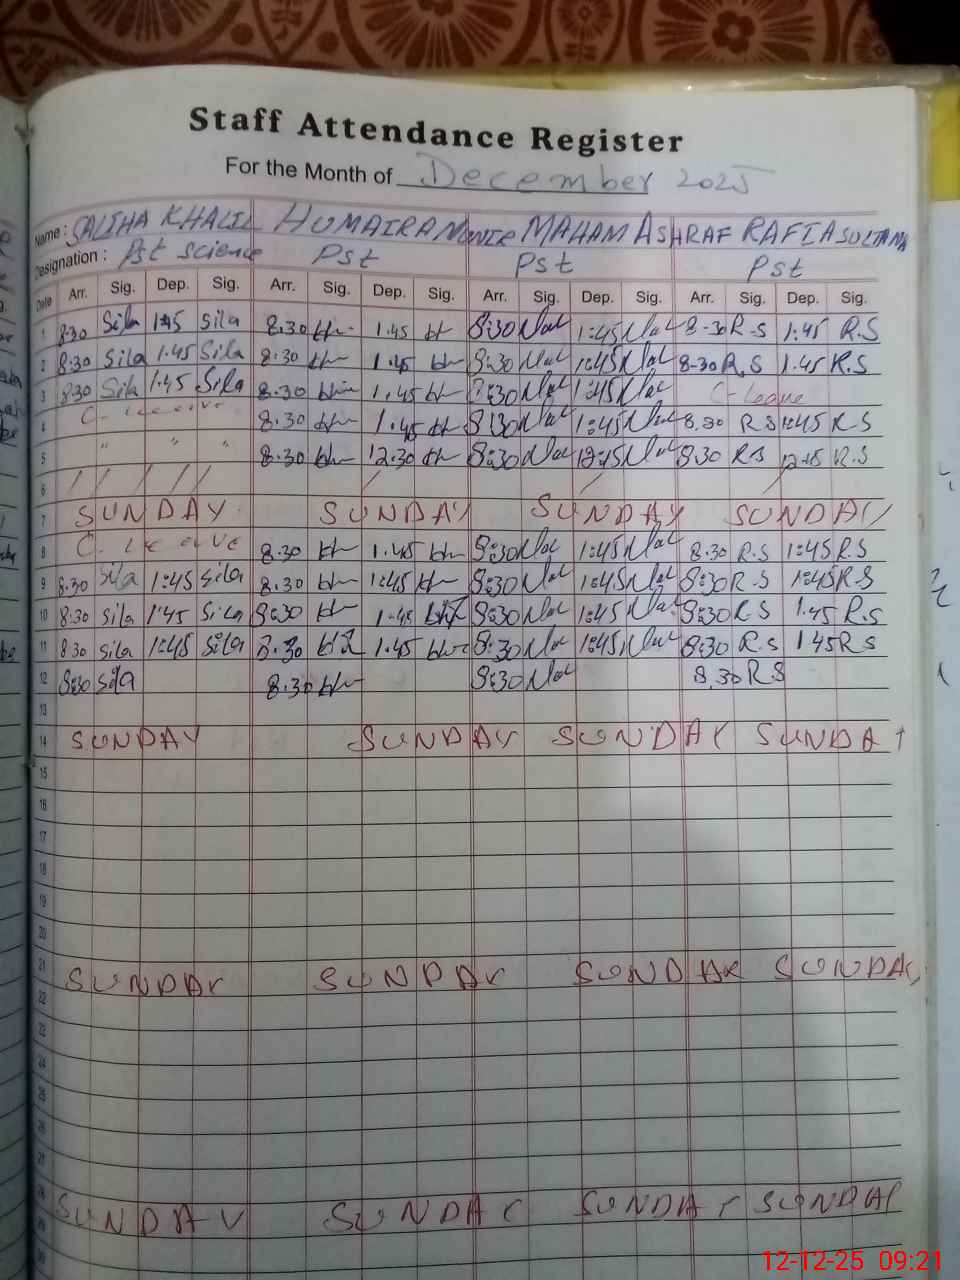 Staff Attendance Register
For the Month of December 2025
Name : SALIHA KHALIL HUMAIRA MUNIR MAHAM ASHRAF RAFIA SULTANA
Designation : Pst science Pst Pst Pst
Date Arr. Sig. Dep. Sig. Arr. Sig. Dep. Sig. Arr. Sig. Dep. Sig. Arr. Sig. Dep. Sig.
1 8:30 Sila 1:45 Sila 8.30 1.45 8:30 1:45 8-30 R-S 1:45 R.S
2 8:30 Sila 1.45 Sila 8:30 1.45 8:30 1:45 8-30 R.S 1.45 R.S
3 8:30 Sila 1.45 Sila 8.30 1.45 8:30 1:45 C-leave
4 C- leeave 8.30 1.45 8:30 1:45 8.30 R S 1:45 R S
5 " " " 8.30 12.30 8:30 12:15 8.30 R.S 12.15 R.S
6 / / / / / / /
7 SUNDAY SUNDAY SUNDAY SUNDAY
8 C. leeave 8.30 1.45 8:30 1:45 8.30 R.S 1:45 R.S
9 8:30 Sila 1:45 Sila 8.30 1:45 8:30 1:45 8:30 R.S 1:45 R.S
10 8:30 Sila 1:45 Sila 8:30 1.45 8:30 1:45 8:30 R.S 1.45 R.S
11 8 30 Sila 1:45 Sila 8.30 1.45 8:30 1:45 8:30 R.S 1 45 R S
12 8:30 Sila 8.30 8:30 8.30 R.S
13
14 SUNDAY SUNDAY SUNDAY SUNDAY
15
16
17
18
19
20
21 SUNDAY SUNDAY SUNDAY SUNDAY
22
23
24
25
26
27
28 SUNDAY SUNDAY SUNDAY SUNDAY
29
30
12-12-25 09:21